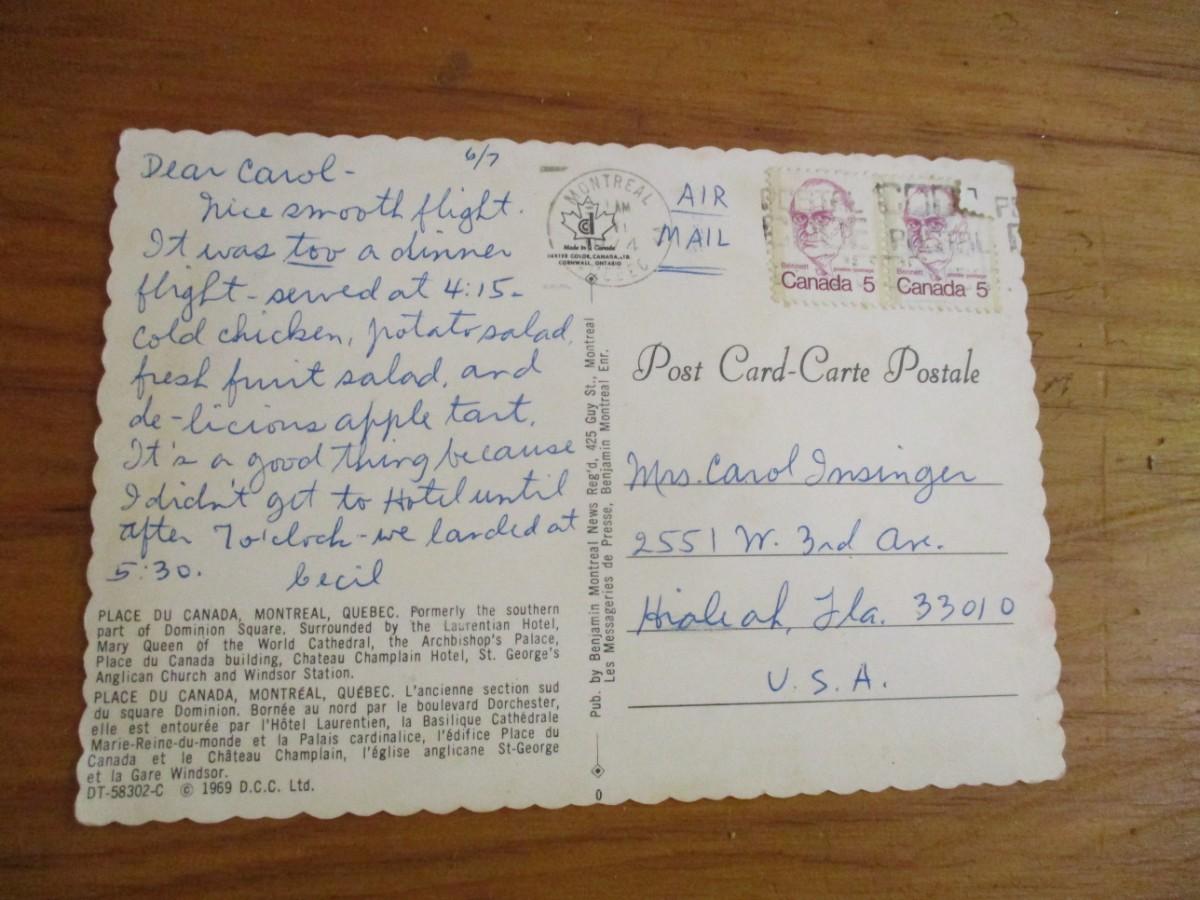 6/7
Dear Carol-
Nice smooth flight.
It was too a dinner
flight - served at 4:15-
cold chicken, potato salad,
fresh fruit salad, and
de-licious apple tart.
It's a good thing because
I didn't get to Hotel until
after 7 o'clock - we landed at
5:30. Cecil
PLACE DU CANADA, MONTREAL, QUEBEC. Pormerly the southern
part of Dominion Square. Surrounded by the Laurentian Hotel,
Mary Queen of the World Cathedral, the Archbishop's Palace,
Place du Canada building, Chateau Champlain Hotel, St. George's
Anglican Church and Windsor Station.
PLACE DU CANADA, MONTRÉAL, QUÉBEC. L'ancienne section sud
du square Dominion. Bornée au nord par le boulevard Dorchester,
elle est entourée par l'Hôtel Laurentien, la Basilique Cathédrale
Marie-Reine-du-monde et la Palais cardinalice, l'édifice Place du
Canada et le Château Champlain, l'église anglicane St-George
et la Gare Windsor.
DT-58302-C © 1969 D.C.C. Ltd.
Pub. by Benjamin Montreal News Reg'd, 425 Guy St., Montreal
Les Messageries de Presse, Benjamin Montreal Enr.
0
MONTREAL
AM
Made in Canada
DEXTER COLOR, CANADA, LTD.
CORNWALL, ONTARIO
AIR
MAIL
Bennett
Canada 5
Bennett
Canada 5
POSTAL
Post Card-Carte Postale
Mrs. Carol Insinger
2551 W. 3rd Ave.
Hialeah, Fla. 33010
U.S.A.